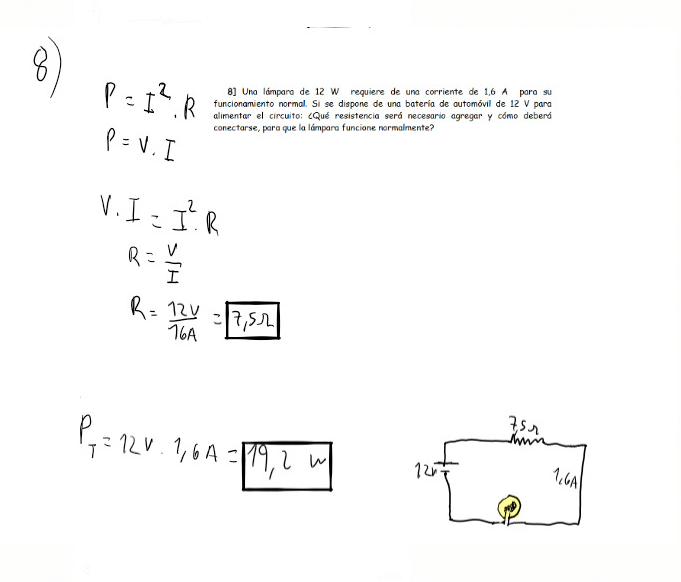 8)
8] Una lámpara de 12 W requiere de una corriente de 1,6 A para su
funcionamiento normal. Si se dispone de una batería de automóvil de 12 V para
alimentar el circuito: ¿Qué resistencia será necesario agregar y cómo deberá
conectarse, para que la lámpara funcione normalmente?
P = I². R
P = V. I
V. I = I². R
R = V/I
R = 12V/16A = 7,5Ω
P_T = 12V. 1,6A = 19,2 W
7,5Ω
12V
1,6A